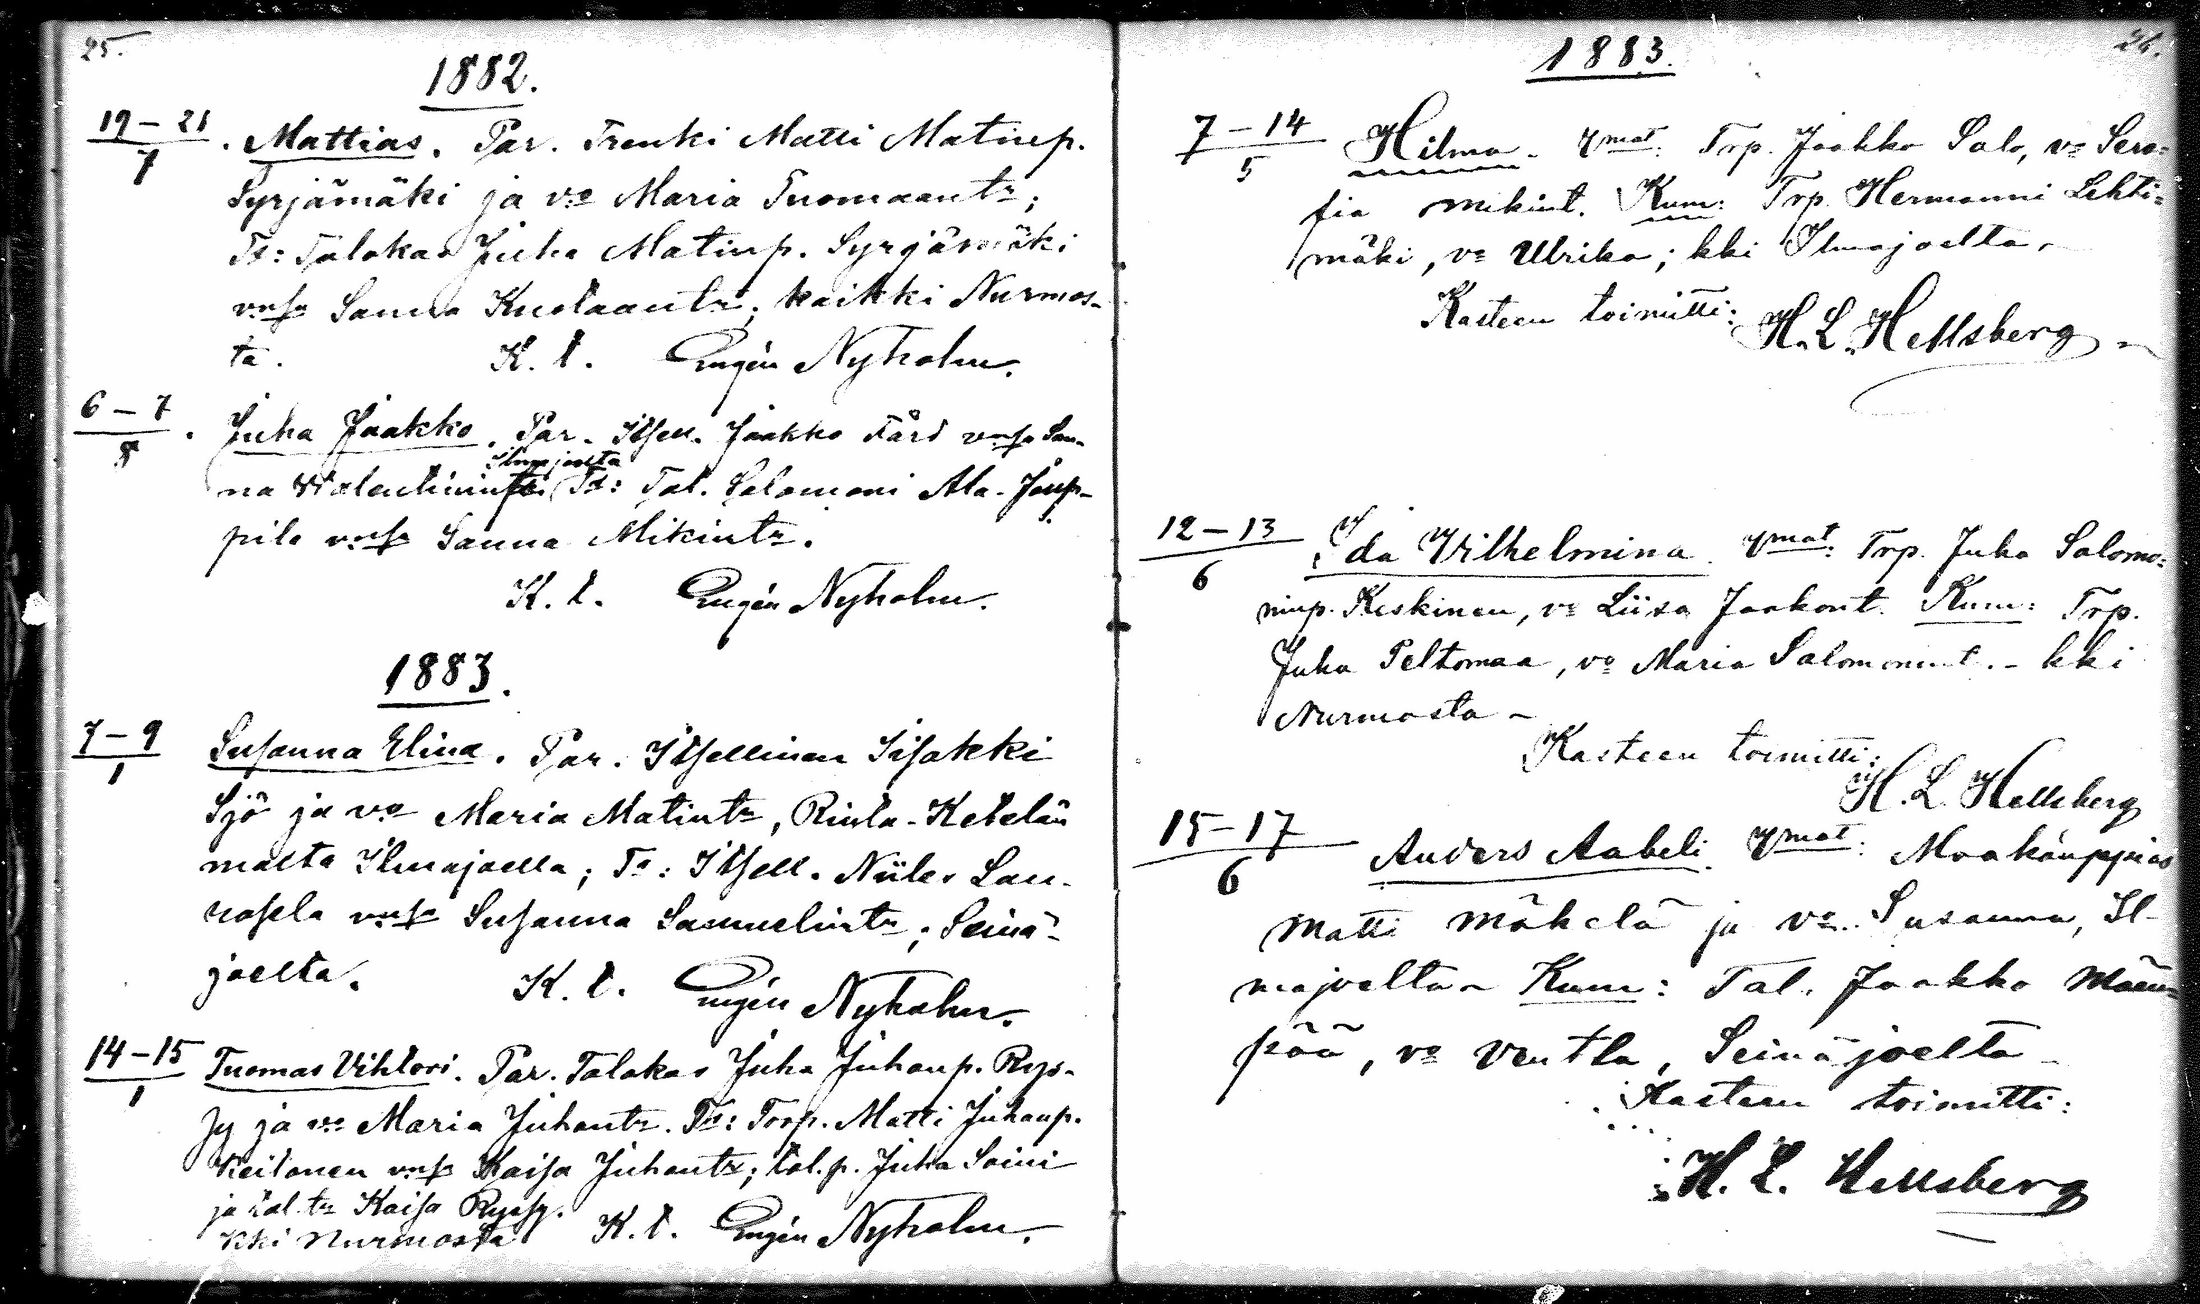 25.
1882.
19-21
7
. Mattias. Par. Trenki Matti Matinp.
Syrjämäki ja vo Maria Tuomaantr;
Ts: Talokas Juha Matinp. Syrjämäki
vnsa Sanna Kustaantr; kaikki Nurmos-
ta. K. t. Eugén Nyholm.
6-7
8
. Juha Jaakko. Par. Itsell. Jaakko Färd vnsa San-
Ilmajoelta
na Walentinintr. Ts: Tal. Salomoni Ala-Joup-
pila vnsa Sanna Mikintr.
K. t. Eugén Nyholm.
1883.
7-9
1
Susanna Elina. Par. Itsellinen Iisakki
Sjö ja vo Maria Matintr, Rinta-Ketelän
maalta Ilmajoella; Ts: Itsell. Niiles Lau-
rosela vnsa Susanna Samuelintr; Seinä-
joelta. K. t. Eugén Nyholm.
14-15
1
Tuomas Vihtori. Par. Talokas Juha Juhanp. Rys-
sy ja vo Maria Juhantr. Ts: Torp. Matti Juhanp.
Keitonen vnsa Kaisa Juhantr; tal.p. Juha Soini
ja tal.tr Kaisa Ryssy.
kki Nurmosta K. t. Eugén Nyholm.
26.
1883.
7-14
5
Hilma. Vmat: Trp. Jaakko Salo, vo Sera=
fia Mikint. Kum: Trp. Hermanni Lehti=
mäki, vo Ulrika; kki Ilmajoelta.
Kasteen toimitti: H. L. Hellsberg
12-13
6
Ida Wilhelmina. Vmat: Trp. Juha Salomo=
ninp. Keskinen, vo Liisa Jaakont. Kum: Trp.
Juha Peltomaa, vo Maria Salomonint. - kki
Nurmosta -
Kasteen toimitti:
H. L. Hellsberg
15-17
6
Anders Aabeli. Vmat: Maakauppias
Matti Mäkelä ja vo. Susanna, Il-
majoelta - Kum: Tal. Jaakko Mäen=
pää, vo Ventla, Seinäjoelta -
Kasteen toimitti:
H. L. Hellsberg